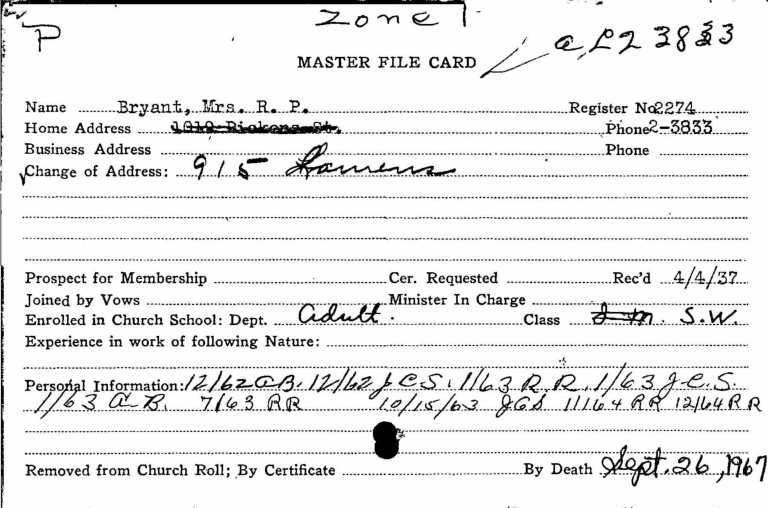 Zone 1
P
AL2 3833
MASTER FILE CARD
Name Bryant, Mrs. R. P. Register No. 2274
Home Address 1019 Pickens St. Phone 2-3833
Business Address Phone
Change of Address: 915
Prospect for Membership Cer. Requested Rec'd 4/4/37
Joined by Vows Minister In Charge
Enrolled in Church School: Dept. Adult. Class S.W.
Experience in work of following Nature:
Personal Information: 12/62 A B. 12/62 J C S. 1/63 R R. 1/63 J.C.S.
1/63 A B. 7/63 RR 10/15/63 JGS 11/64 RR 12/64 RR
Removed from Church Roll; By Certificate By Death Sept. 26, 1967